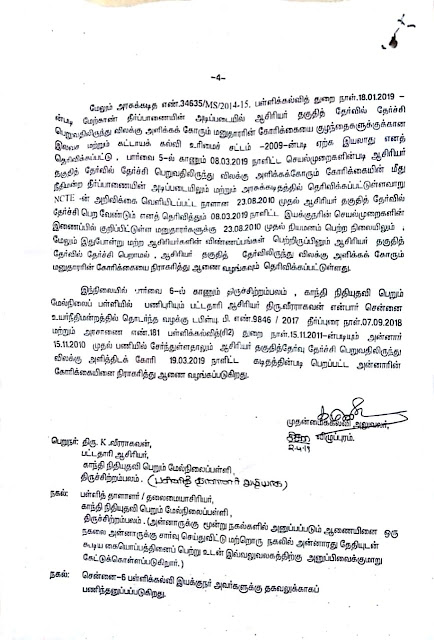 -4-
மேலும் அரசுக்கடித எண்.34635/MS/2014-15. பள்ளிக்கல்வித் துறை நாள்.18.01.2019 -
ன்படி மேற்காண் தீர்ப்பாணையின் அடிப்படையில் ஆசிரியர் தகுதித் தேர்வில் தேர்ச்சி
பெறுவதிலிருந்து விலக்கு அளிக்கக் கோரும் மனுதாரரின் கோரிக்கையை குழந்தைகளுக்கான
இலவச மற்றும் கட்டாயக் கல்வி உரிமைச் சட்டம் -2009-ன்படி ஏற்க இயலாது எனத்
தெரிவிக்கப்பட்டு , பார்வை 5-ல் காணும் 08.03.2019 நாளிட்ட செயல்முறைகளின்படி ஆசிரியர்
தகுதித் தேர்வில் தேர்ச்சி பெறுவதிலிருந்து விலக்கு அளிக்கக்கோரும் கோரிக்கையின் மீது
நீதிமன்ற தீர்ப்பாணையின் அடிப்படையிலும் மற்றும் அரசுக்கடிதத்தில் தெரிவிக்கப்பட்டுள்ளவாறு
NCTE -ன் அறிவிக்கை வெளியிடப்பட்ட நாளான 23.08.2010 முதல் ஆசிரியர் தகுதித் தேர்வில்
தேர்ச்சி பெற வேண்டும் எனத் தெரிவித்தும் 08.03.2019 நாளிட்ட இயக்குநரின் செயல்முறைகளின்
இணைப்பில் குறிப்பிட்டுள்ள மனுதாரர்களுக்கு 23.08.2010 முதல் நியமனம் பெற்ற நிலையிலும் ,
மேலும் இதுபோன்று மற்ற ஆசிரியர்களின் விண்ணப்பங்கள் பெற்றிருப்பினும் ஆசிரியர் தகுதித்
தேர்வில் தேர்ச்சி பெறாமல் , ஆசிரியர் தகுதித் தேர்விலிருந்து விலக்கு அளிக்கக் கோரும்
மனுதாரரின் கோரிக்கையை நிராகரித்து ஆணை வழங்கவும் தெரிவிக்கப்பட்டுள்ளது.
இந்நிலையில் பார்வை 5-ல் காணும் திருச்சிற்றம்பலம் , காந்தி நிதியுதவி பெறும்
மேல்நிலைப் பள்ளியில் பணிபுரியும் பட்டதாரி ஆசிரியர் திரு.வீரராகவன் என்பார் சென்னை
உயர்நீதிமன்றத்தில் தொடர்ந்த வழக்கு டபிள்யு. பி. எண்.9846 / 2017 தீர்ப்புரை நாள்.07.09.2018
மற்றும் அரசாணை எண்.181 பள்ளிக்கல்வித்(சி2) துறை நாள்.15.11.2011-ன்படியும் அன்னார்
15.11.2010 முதல் பணியில் சேர்ந்துள்ளதாலும் ஆசிரியர் தகுதித்தேர்வு தேர்ச்சி பெறுவதிலிருந்து
விலக்கு அளித்திடக் கோரி 19.03.2019 நாளிட்ட கடிதத்தின்படி பெறப்பட்ட அன்னாரின்
கோரிக்கையினை நிராகரித்து ஆணை வழங்கப்படுகிறது.
முதன்மைக்கல்வி அலுவலர்,
விழுப்புரம்.
2-4-19
பெறுநர்: திரு. K வீரராகவன்,
பட்டதாரி ஆசிரியர்,
காந்தி நிதியுதவி பெறும் மேல்நிலைப்பள்ளி ,
திருச்சிற்றம்பலம் .
நகல்: பள்ளித் தாளாளர் / தலைமையாசிரியர்,
காந்தி நிதியுதவி பெறும் மேல்நிலைப்பள்ளி ,
திருச்சிற்றம்பலம் . (அன்னாருக்கு மூன்று நகல்களில் அனுப்பப்படும் ஆணையினை ஒரு
நகலை அன்னாருக்கு சார்வு செய்துவிட்டு மற்றொரு நகலில் அன்னாரது தேதியுடன்
கூடிய கையொப்பத்தினைப் பெற்று உடன் இவ்வலுவலகத்திற்கு அனுப்பிவைக்குமாறு
கேட்டுக்கொள்ளப்படுகிறார்.)
நகல்: சென்னை-6 பள்ளிக்கல்வி இயக்குநர் அவர்களுக்கு தகவலுக்காகப்
பணிந்தனுப்பப்படுகிறது.